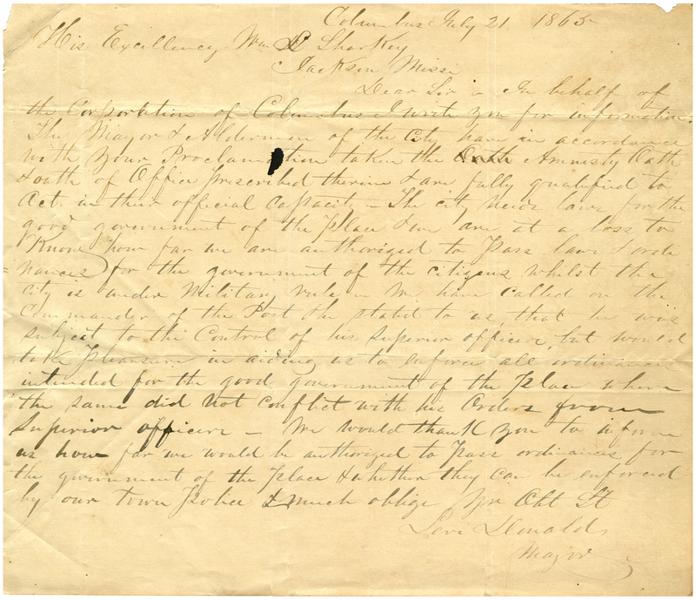 Columbus July 21 1865
His Excellency Wm L Sharkey
Jackson Missi
Dear Sir In behalf of
the Corporation of Columbus I write you for information.
The Mayor & Aldermen of the City have in accordance
with your Proclamation taken the Amnesty Oath
& oath of Office prescribed therein & are fully qualified to
Act in their official capacity – The city needs laws for the
good government of the place & we are at a loss to
Know how far we are authorized to pass laws & ordi
=nances for the government of the citizens whilst the
City is under Military rule – We have called on the
Commander of the Post He stated to us that he was
subject to the Control of his superior officers, but would
take pleasure in aiding us to enforce all ordinances
intended for the good government of the place where
the same did not conflict with his Orders from
Superior officers – We would thank you to inform
us how far we would be authorized to pass ordinances for
the government of the place & whether they can be enforced
by our town Police & much oblige Yr Obt St
Levi Donald
Mayor